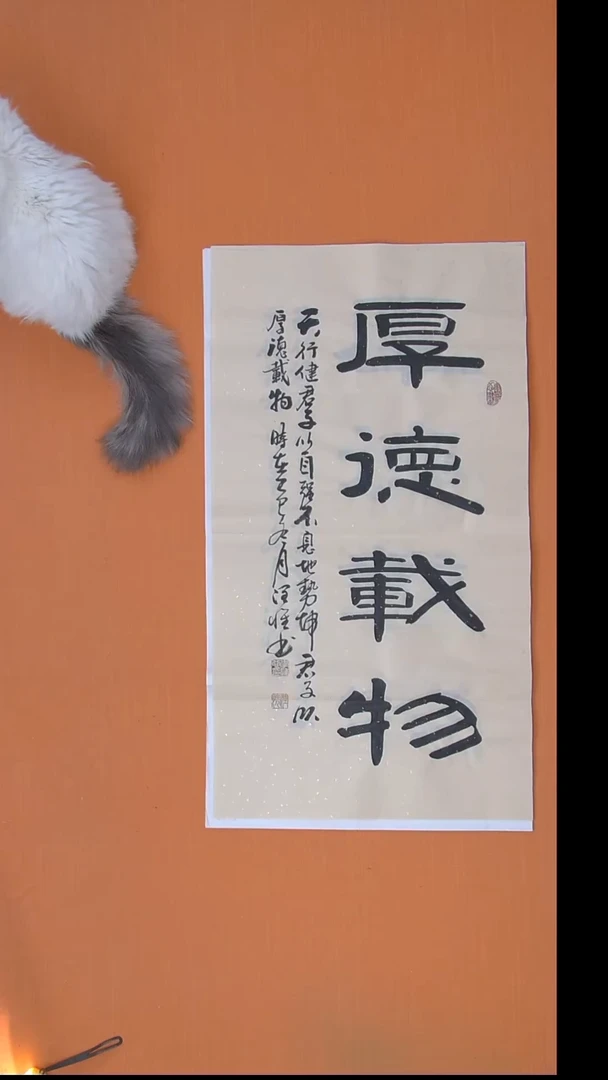 厚德載物
天行健君子以自強不息地勢坤君子以
厚德載物 時在乙巳 月 书